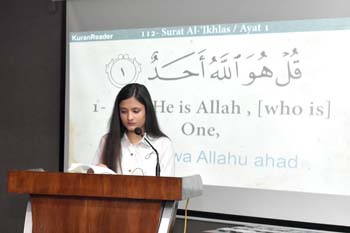 KuranReader 112- Surat Al-'Ikhlas / Ayat 1
قُلْ هُوَ ٱللَّهُ أَحَدٌ ١
1- He is Allah , [who is]
One,
wa Allahu ahad